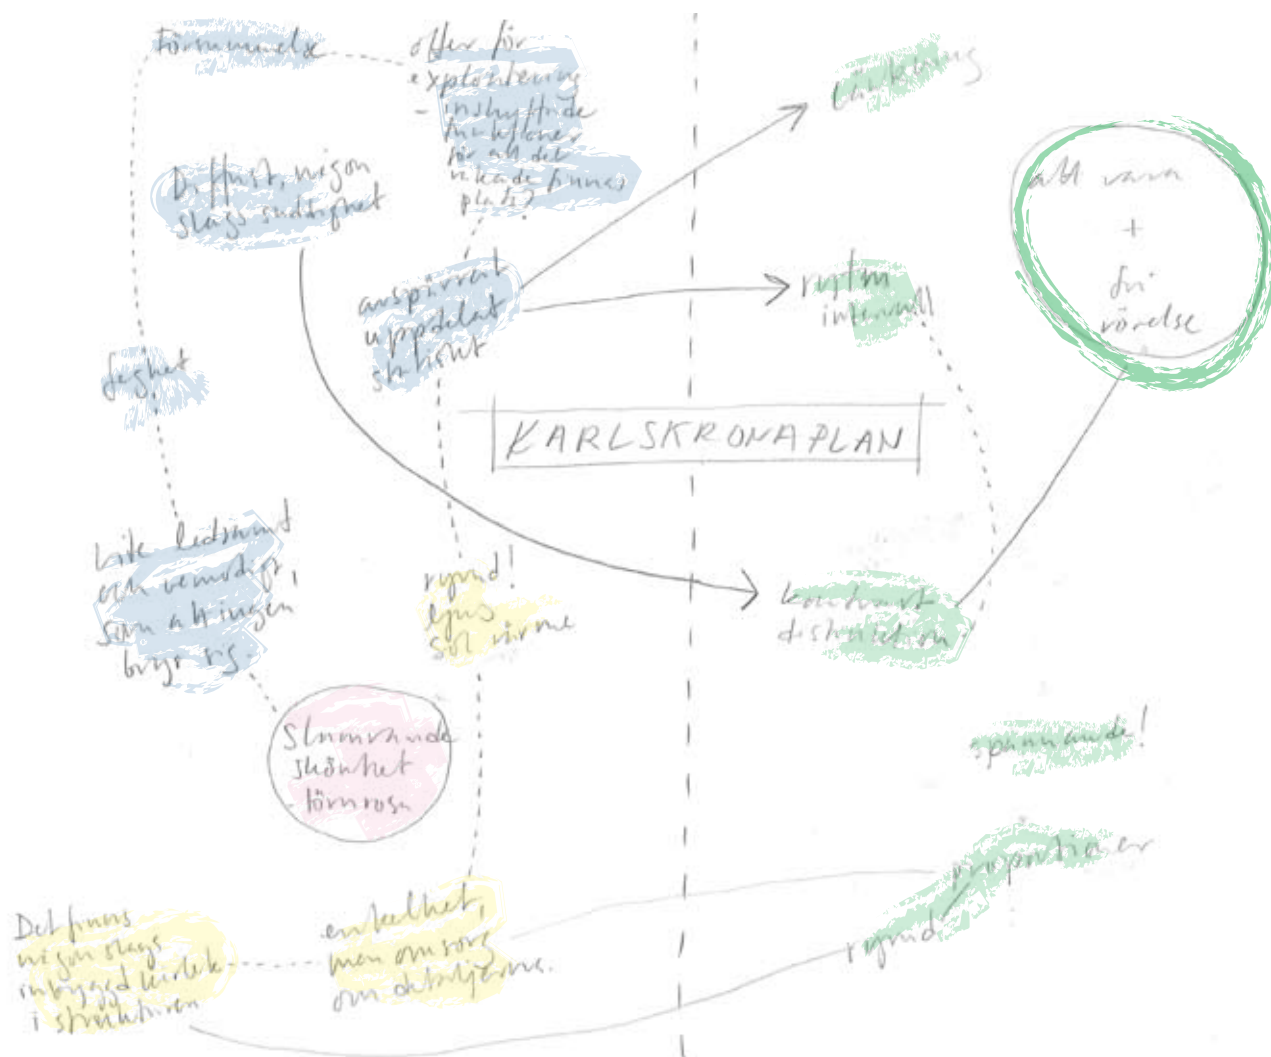 Försummelse
offer för
exploatering
- inskyffade
funktioner
för att det
råkade finnas
plats?
Diffust, någon
slags suddighet
avspärrat
uppdelat
stökigt
feghet
Lite ledsamt
och vemodigt,
som att ingen
bryr sig.
rymd!
ljus
sol värme
Slumrande
skönhet
- törnrosa
Det finns
någon slags
inbyggd kärlek
i strukturen
enkelhet,
men omsorg
om detaljerna.
KARLSKRONAPLAN
länkning
rytm
intervall
att vara
+
fri
rörelse
kontrast
distinktion
spännande!
proportioner
rymd